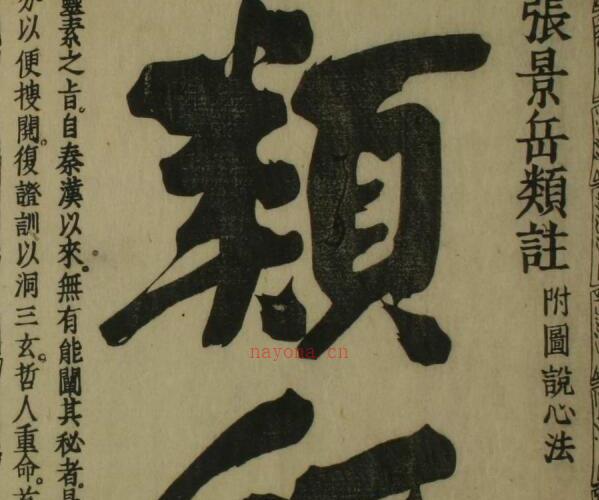 張景岳類註 附圖說心法
類
靈素之旨。自秦漢以來。無有能闡其秘者。
以便搜閱。復證訓以洞三玄。哲人重命。
nayona.cn